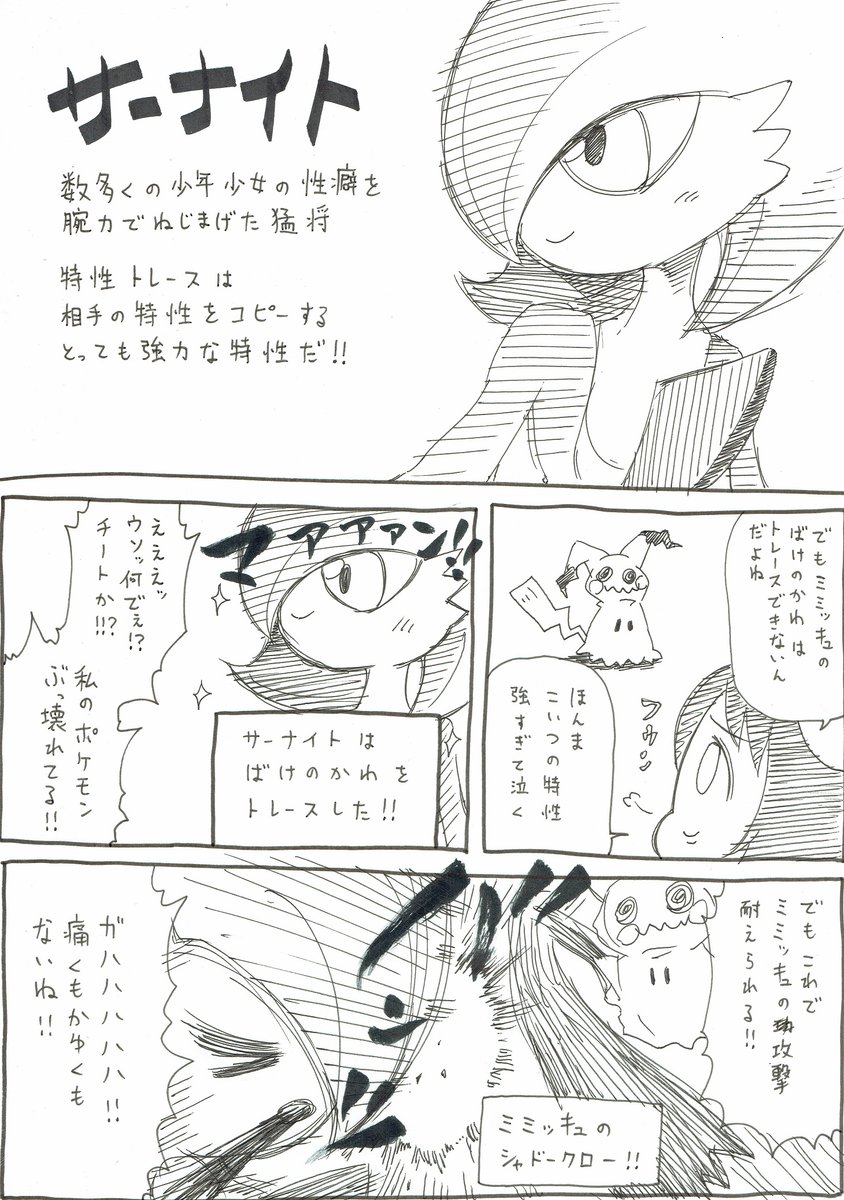 サーナイト
数多くの少年少女の性癖を
腕力でねじまげた猛将
特性トレースは
相手の特性をコピーする
とっても強力な特性だ!!
でもミミッキュの
ばけのかわは
トレースできないん
だよね
フゥン
ほんま
こいつの特性
強すぎて泣く
ファァァァン!!
サーナイトは
ばけのかわを
トレースした!!
えええッ
ウソッ何でぇ!?
チートか!!?
私のポケモン
ぶっ壊れてる!!
でもこれで
ミミッキュの攻撃
耐えられる!!
ミミッキュの
シャドークロー!!
ガハハハハハ!!
痛くもかゆくも
ないね!!